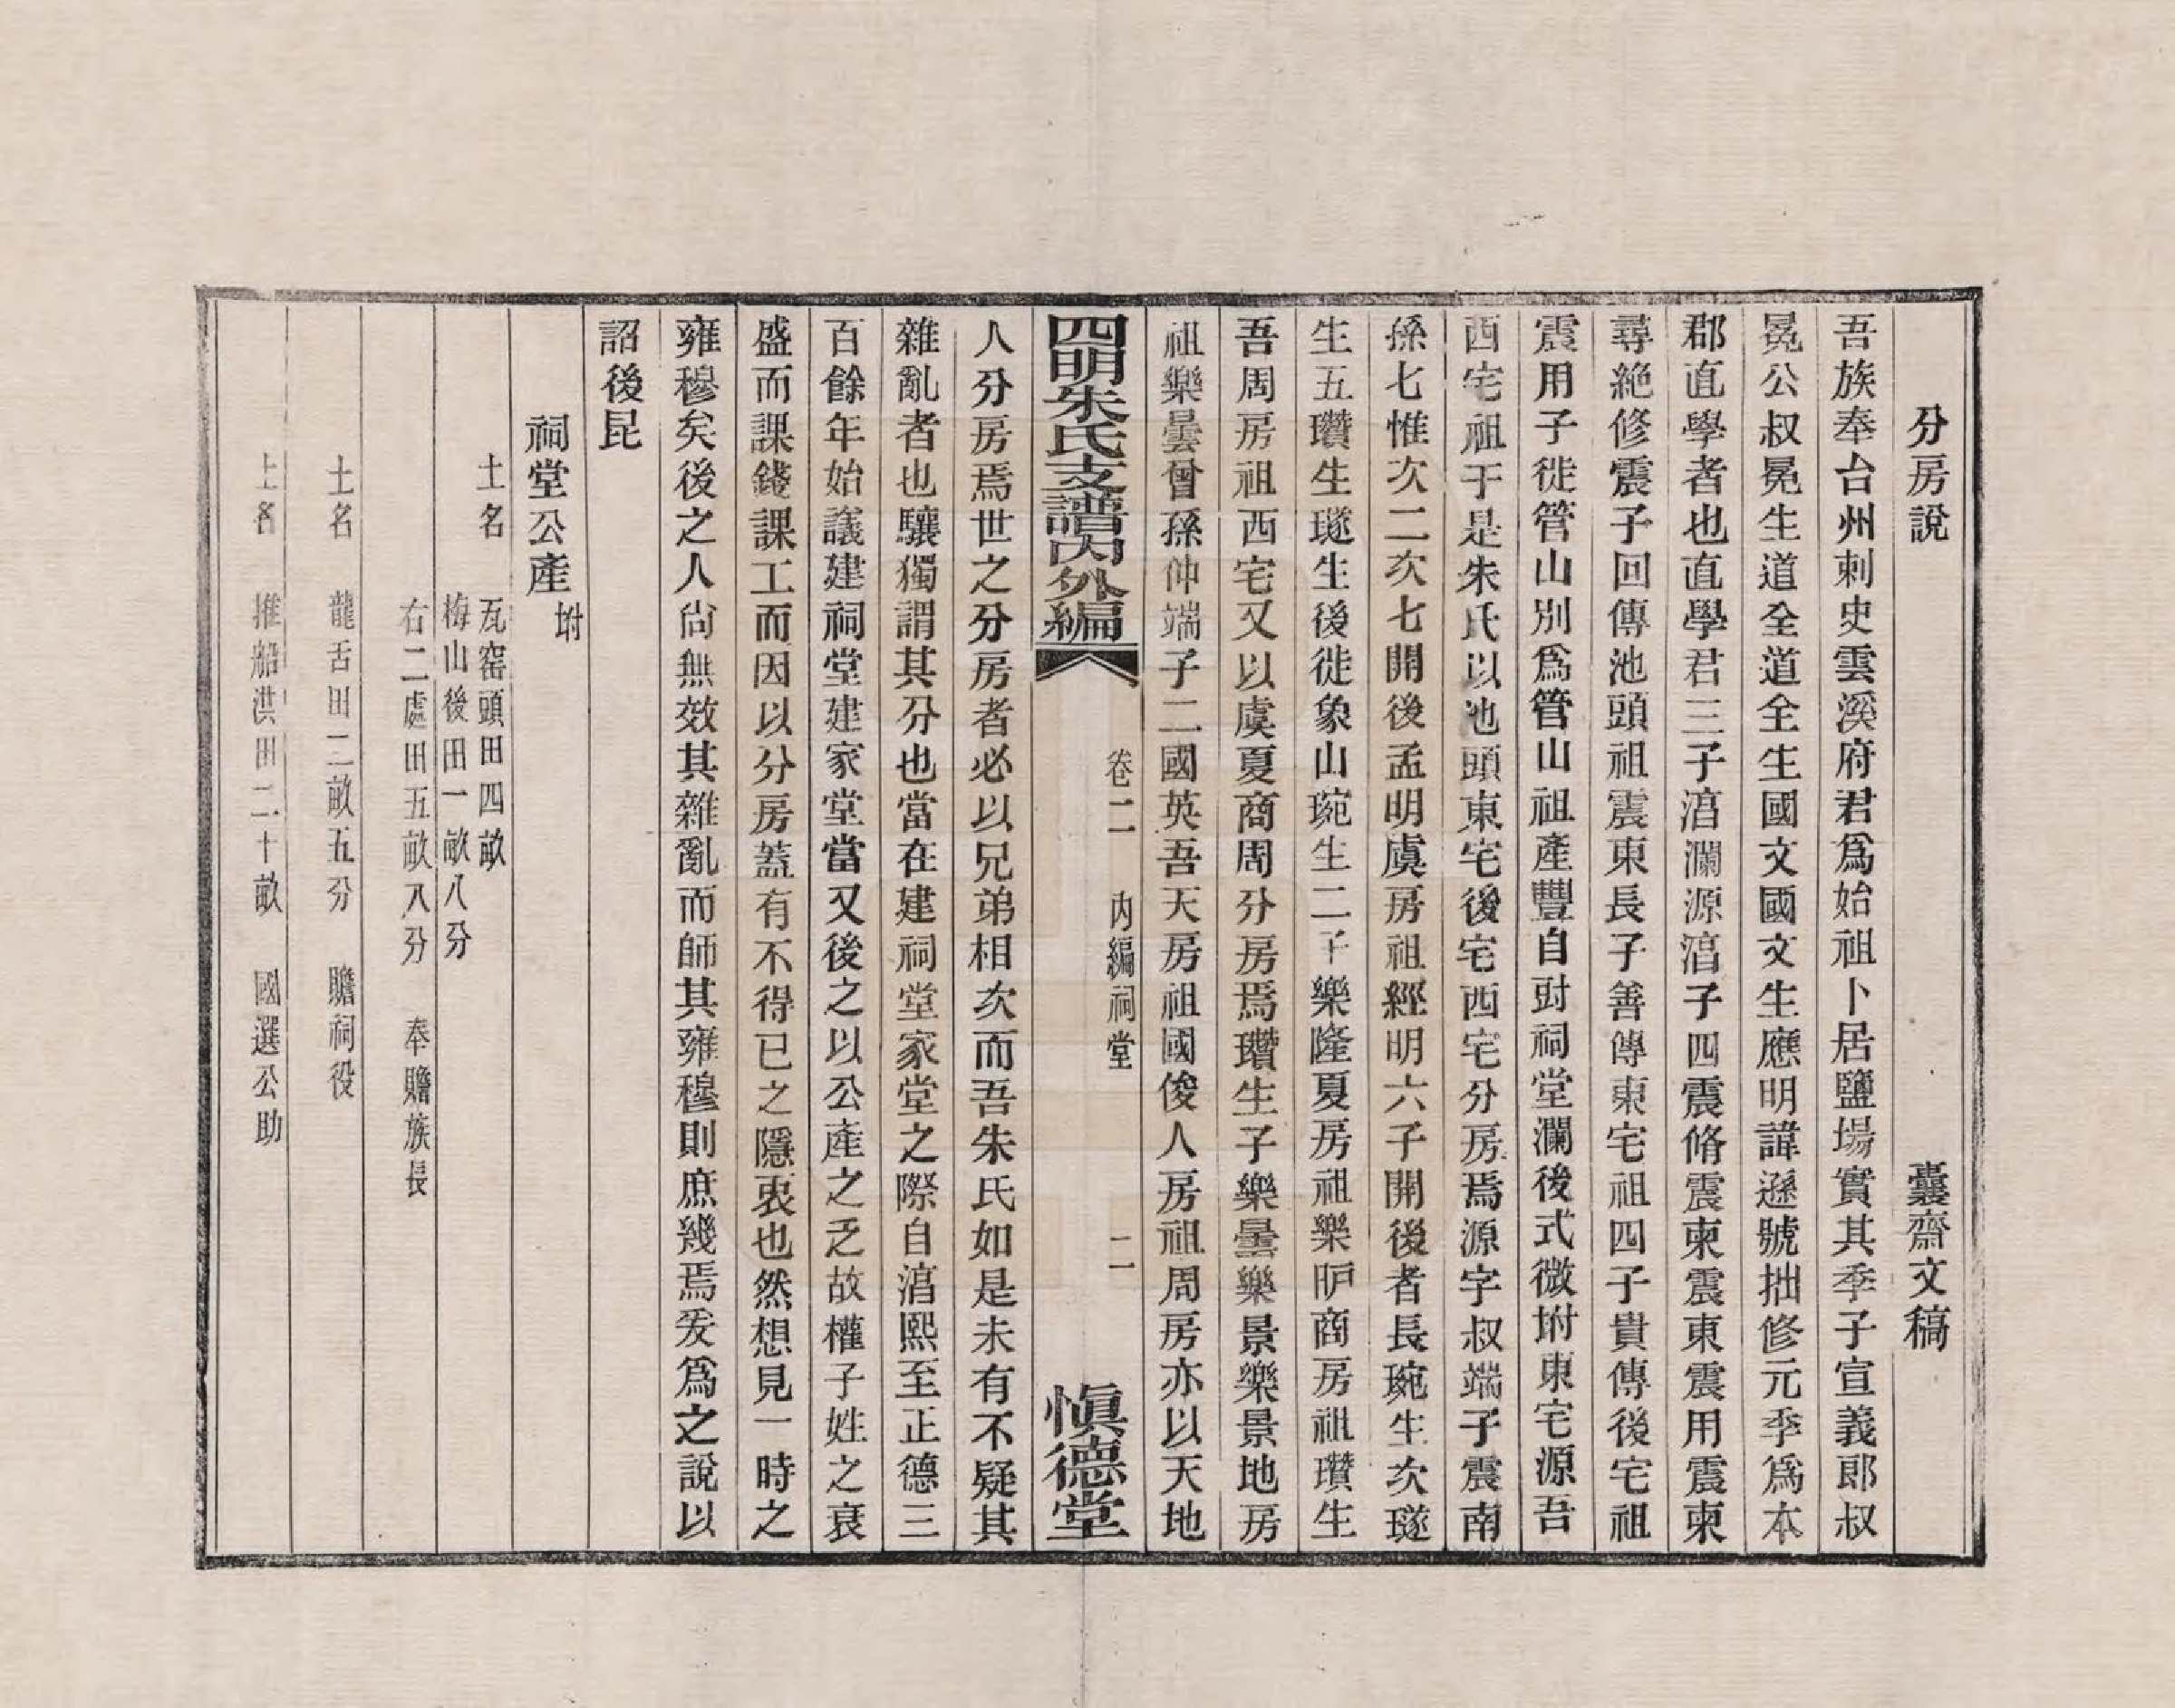 分房說　囊齋文稿
吾族奉台州刺史雲溪府君爲始祖卜居鹽場實其季子宣義郎叔
冕公叔冕生道全道全生國文國文生應明諱遜號拙修元季爲本
郡直學者也直學君三子湻瀾源湻子四震脩震東震東震用震東
尋絶修震子回傳池頭祖震東長子善傳東宅祖四子貴傳後宅祖
震用子徙管山別爲管山祖產豐自尌祠堂瀾後式微坿東宅源吾
西宅祖于是朱氏以池頭東宅後宅西宅分房焉源字叔端子震南
孫七惟次二次七開後孟明虞房祖經明六子開後者長琬生次璲
生五瓚生璲生後徙象山琬生二子樂隆夏房祖樂昈商房祖瓚生
吾周房祖西宅又以虞夏商周分房焉瓚生子樂曇樂景樂景地房
祖樂曇曾孫仲端子二國英吾天房祖國俊人房祖周房亦以天地
四明朱氏支譜內外編　卷二　內編祠堂　二　愼德堂
人分房焉世之分房者必以兄弟相次而吾朱氏如是未有不疑其
雜亂者也驤獨謂其分也當在建祠堂家堂之際自湻熙至正德三
百餘年始議建祠堂建家堂當又後之以公產之乏故權子姓之衰
盛而課錢課工而因以分房蓋有不得已之隱衷也然想見一時之
雍穆矣後之人尙無效其雜亂而師其雍穆則庶幾焉爰爲之說以
詔後昆
祠堂公產坿
土名　瓦窑頭田四畝
梅山後田一畝八分
右二處田五畝八分　奉贍族長
土名　龍舌田二畝五分　贍祠役
土名　推船洪田二十畝　國選公助